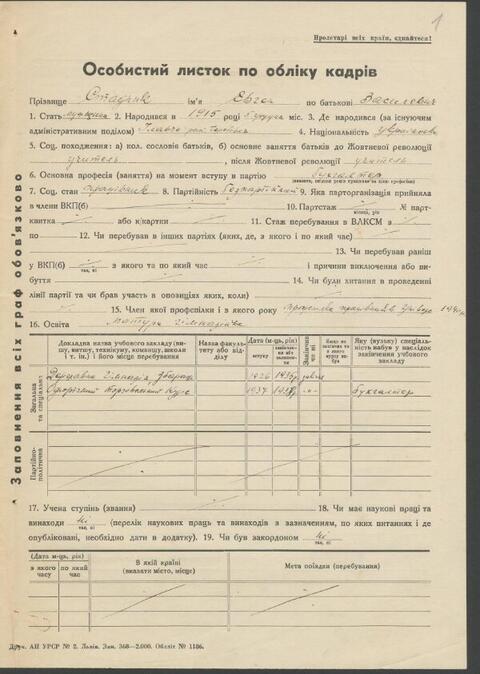 1
Пролетарі всіх країн, єднайтеся!
Особистий листок по обліку кадрів
Прізвище Стадник ім'я Євген по батькові Василевич
1. Стать 2. Народився в 1915 році місяці 3. Де народився (за існуючим
адміністративним поділом) 4. Національність українець
5. Соц. походження: а) кол. сословів батьків, б) основне заняття батьків до Жовтневої революції
учитель, після Жовтневої революції учитель
6. Основна професія (заняття) на момент вступу в партію бухгалтер
7. Соц. стан працівник 8. Партійність безпартійний 9. Яка парторганізація прийняла
в члени ВКП(б) 10. Партстаж № парт-
місяці, рік
квитка або к/картки 11. Стаж перебування в ВЛКСМ з
по 12. Чи перебував в інших партіях (яких, де, з якого і по який час)
13. Чи перебував раніш
у ВКП(б) з якого та по який час і причини виключення або ви-
так, ні
буття 14. Чи були хитання в проведенні
лінії партії та чи брав участь в опозиціях яких, коли)
15. Член якої профспілки і з якого року 1940
16. Освіта Матура гімназійна
Заповнення всіх граф обов'язково
Докладна назва учбового закладу (ви-
шу, втишу, технікуму, команду, школи
і т. ін.) і його місце перебування
Назва факуль-
тету або від-
ділу
Дата (м-ця, рік)
вступу
Закінчив
чи ні
Яку (вузьку) спеціаль-
ність набув у наслідок
закінчення учбового
закладу
Загальна
та спеціальна
Державна гімназія, Збараж 1926 1935
Однорічний Курс 1937 1938 Бухгалтер
Партійно-
політична
17. Учена ступінь (звання) 18. Чи має наукові праці та
винаходи ні (перелік наукових праць та винаходів з зазначенням, по яких питаннях і де
так, ні
опубліковані, необхідно дати в додатку). 19. Чи був закордоном ні
так, ні
(Дата м-ць, рік)
з якого
часу
по який
час
В якій країні
(вказати місто, місце)
Мета поїздки (перебування)
Друк. АН УРСР № 2. Львів. Зам. 368—2.000. Обліт № 1186.